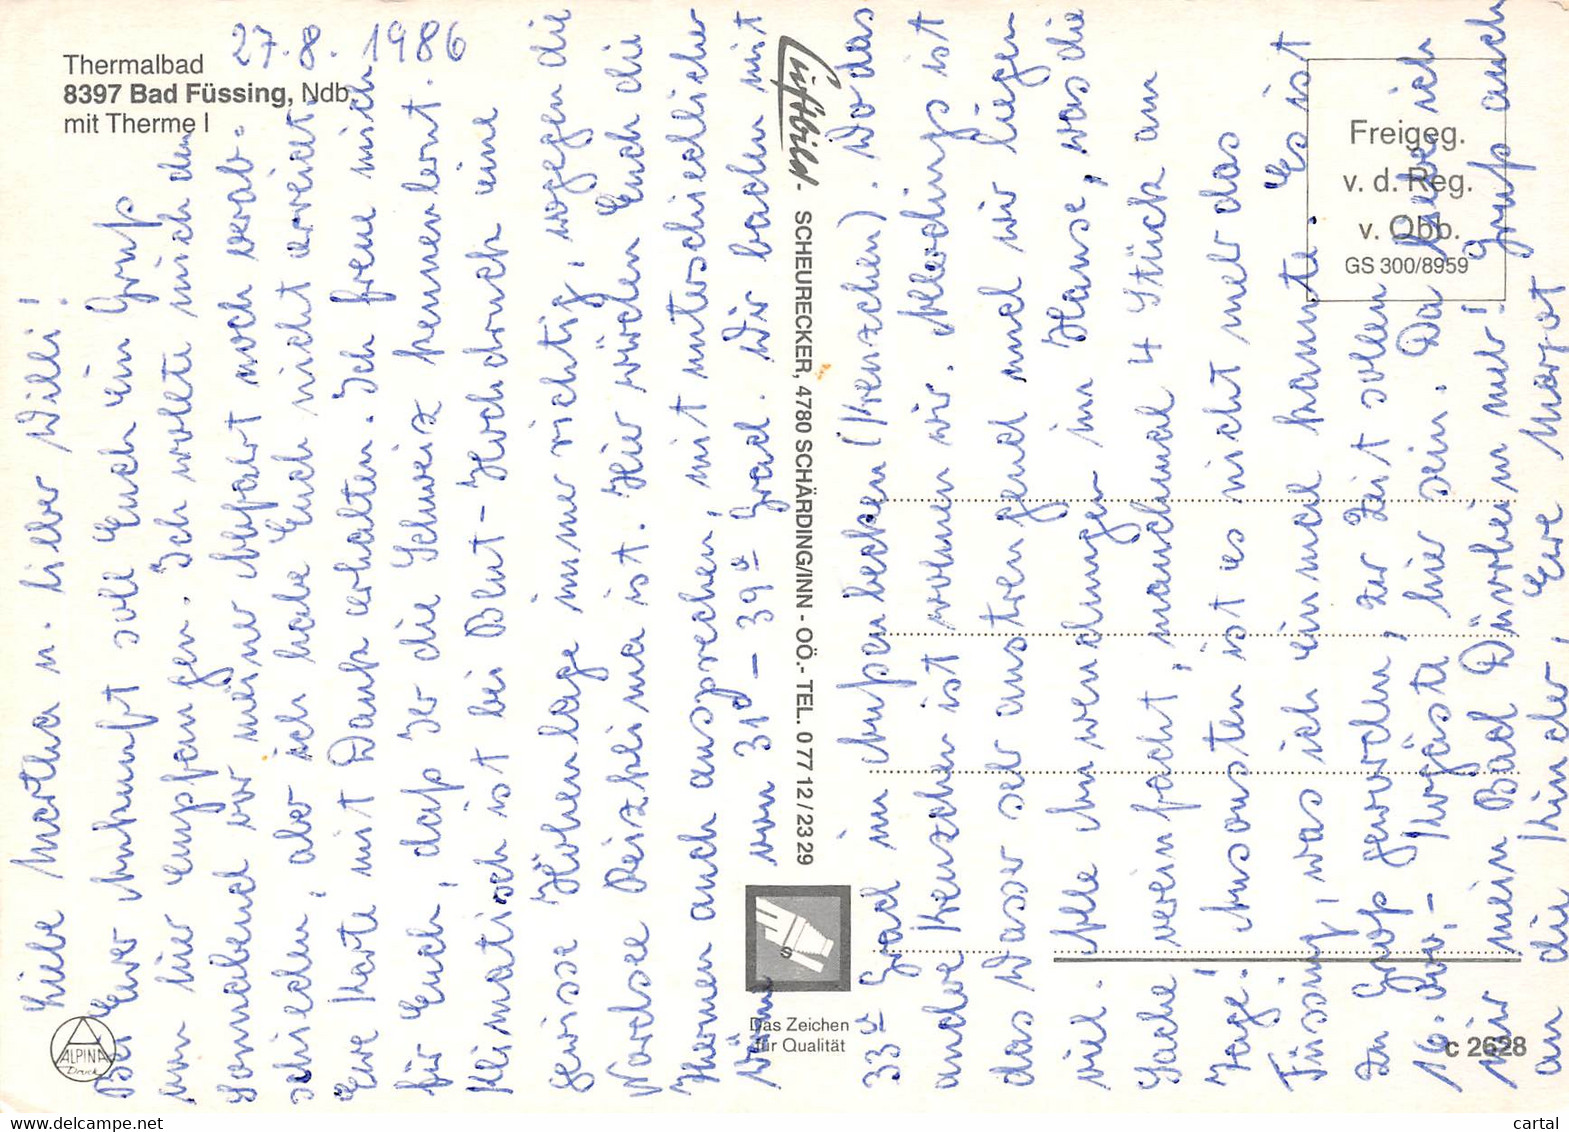 Thermalbad
8397 Bad Füssing, Ndb.
mit Therme I
27.8.1986
Liebe Martha u. lieber Willi!
Bei Eurer Ankunft soll Euch ein Gruß
von hier empfangen. Ich wollte mich den
Sonnabend vor meiner Abfahrt noch verab-
schieden, aber ich habe Euch nicht erreicht.
Eure Karte mit Dank erhalten. Ich freue mich
für Euch, daß Ihr die Schweiz kennenlernt.
Klimatisch ist bei Blut-Hochdruck eine
gewisse Höhenlage immer richtig, wogegen die
Nordsee Reizklima ist. Hier würden Euch die
Thermen auch ansprechen, mit unterschiedlicher
Wärme von 31° - 39° Grad. Wir baden mit
33° Grad im Außenbecken (Kreuzchen). Wo das
andre Kreuzchen ist wohnen wir. Allerdings ist
das Wasser sehr anstrengend und wir liegen
viel. Alle Anwendungen im Hause, was die
Sache vereinfacht, manchmal 4 Stück am
Tage! Ansonsten ist es nicht mehr das
Füssing, was ich einmal kannte. Es ist
zu groß geworden, zur Zeit sollen
16. Kurgäste hier sein. Da lobe ich
mir mein Bad Dürrheim mehr! Gruß auch
an die Kinder, Eure Margot
Luftbild - SCHEURECKER, 4780 SCHÄRDING/INN - OÖ. - TEL. 0 77 12 / 23 29
Freigeg.
v. d. Reg.
v. Obb.
GS 300/8959
S
Das Zeichen
für Qualität
ALPINA
Druck
c 2628
cartal